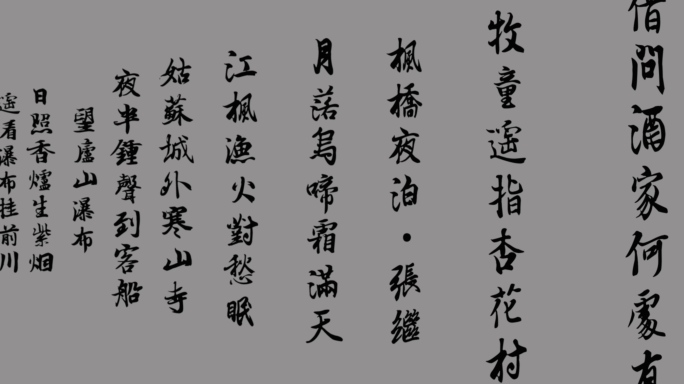 借問酒家何處有
牧童遥指杏花村
楓橋夜泊·張繼
月落烏啼霜滿天
江楓漁火對愁眠
姑蘇城外寒山寺
夜半鍾聲到客船
望廬山瀑布
日照香爐生紫烟
遥看瀑布挂前川